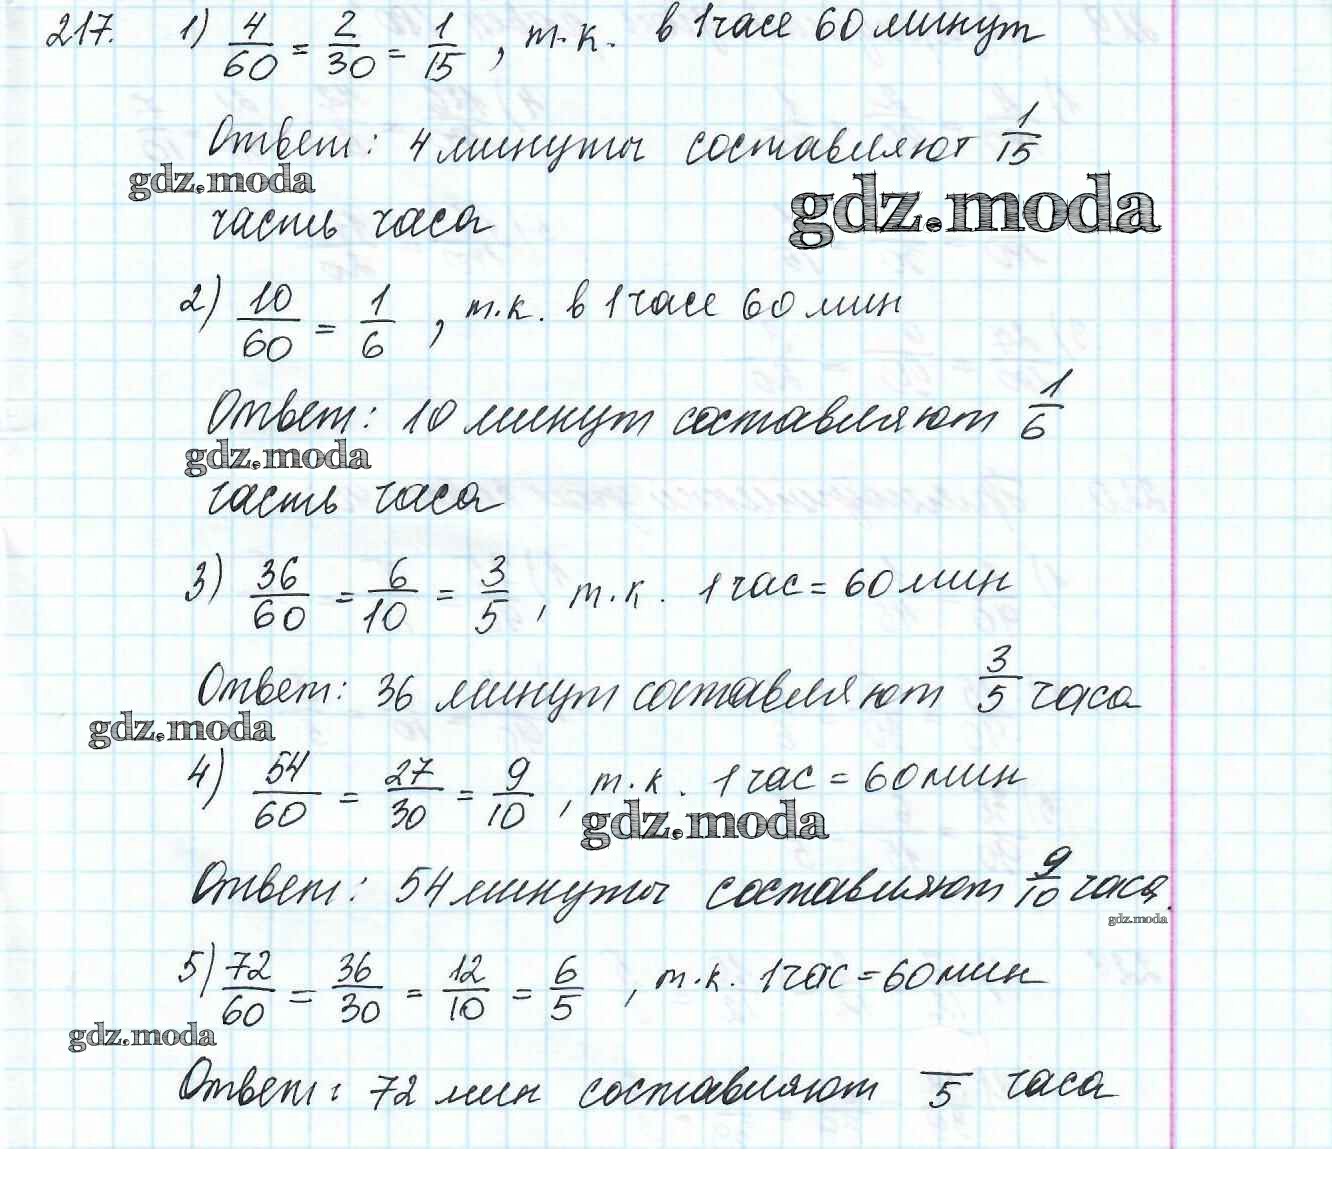 217. 1) 4/60 = 2/30 = 1/15, т.к. в 1 часе 60 минут
Ответ: 4 минуты составляют 1/15
gdz.moda
gdz.moda
часть часа
2) 10/60 = 1/6, т.к. в 1 часе 60 мин
Ответ: 10 минут составляют 1/6
gdz.moda
часть часа
3) 36/60 = 6/10 = 3/5, т.к. 1 час = 60 мин
Ответ: 36 минут составляют 3/5 часа
gdz.moda
4) 54/60 = 27/30 = 9/10, т.к. 1 час = 60 мин
gdz.moda
Ответ: 54 минуты составляют 9/10 часа.
gdz.moda
5) 72/60 = 36/30 = 12/10 = 6/5, т.к. 1 час = 60 мин
gdz.moda
Ответ: 72 мин составляют /5 часа